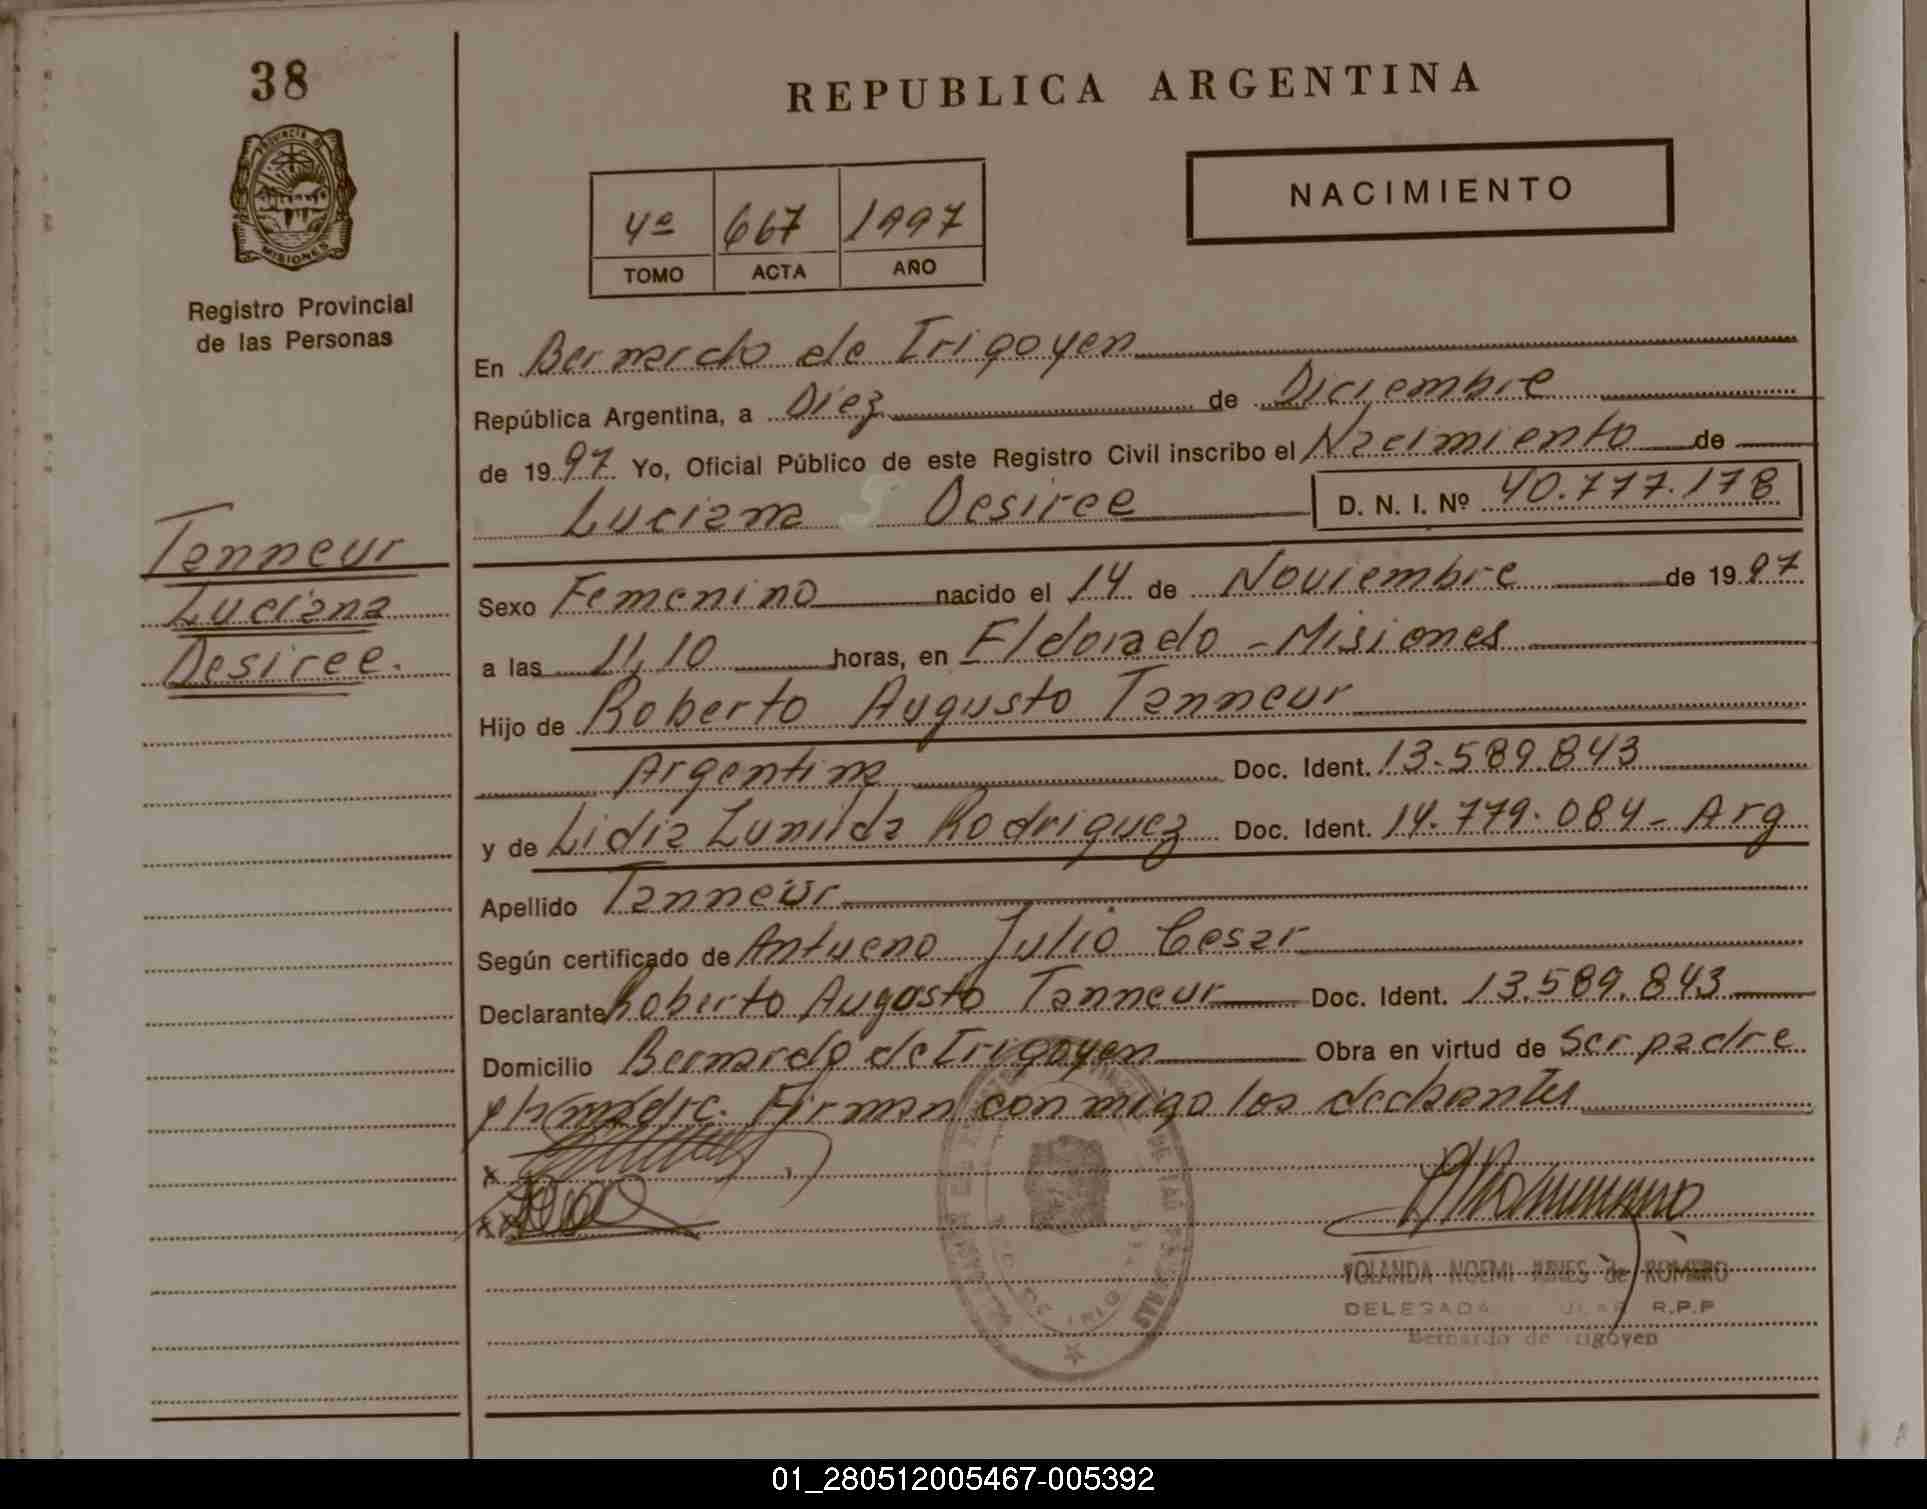 38
REPUBLICA ARGENTINA
PROVINCIA DE
MISIONES
Registro Provincial
de las Personas
4º 667 1997
TOMO ACTA AÑO
NACIMIENTO
En Bernardo de Irigoyen
República Argentina, a Diez de Diciembre
de 1997 Yo, Oficial Público de este Registro Civil inscribo el Nacimiento de
Luciana Desiree D. N. I. Nº 40.777.178
Tanneur
Luciana
Desiree.
Sexo Femenino nacido el 14 de Noviembre de 1997
a las 11,10 horas, en Eldorado - Misiones
Hijo de Roberto Augusto Tanneur
Argentina Doc. Ident. 13.589.843
y de Lidia Zunilda Rodriguez Doc. Ident. 14.779.084 - Arg
Apellido Tanneur
Según certificado de Antueno Julio Cesar
Declarante Roberto Augusto Tanneur Doc. Ident. 13.589.843
Domicilio Bernardo de Irigoyen Obra en virtud de Ser padre
y la madre. Firman conmigo los declarantes
x
xx
YOLANDA NOEMI de ROMERO
DELEGADA R.P.P
Bernardo de Irigoyen
01_280512005467-005392